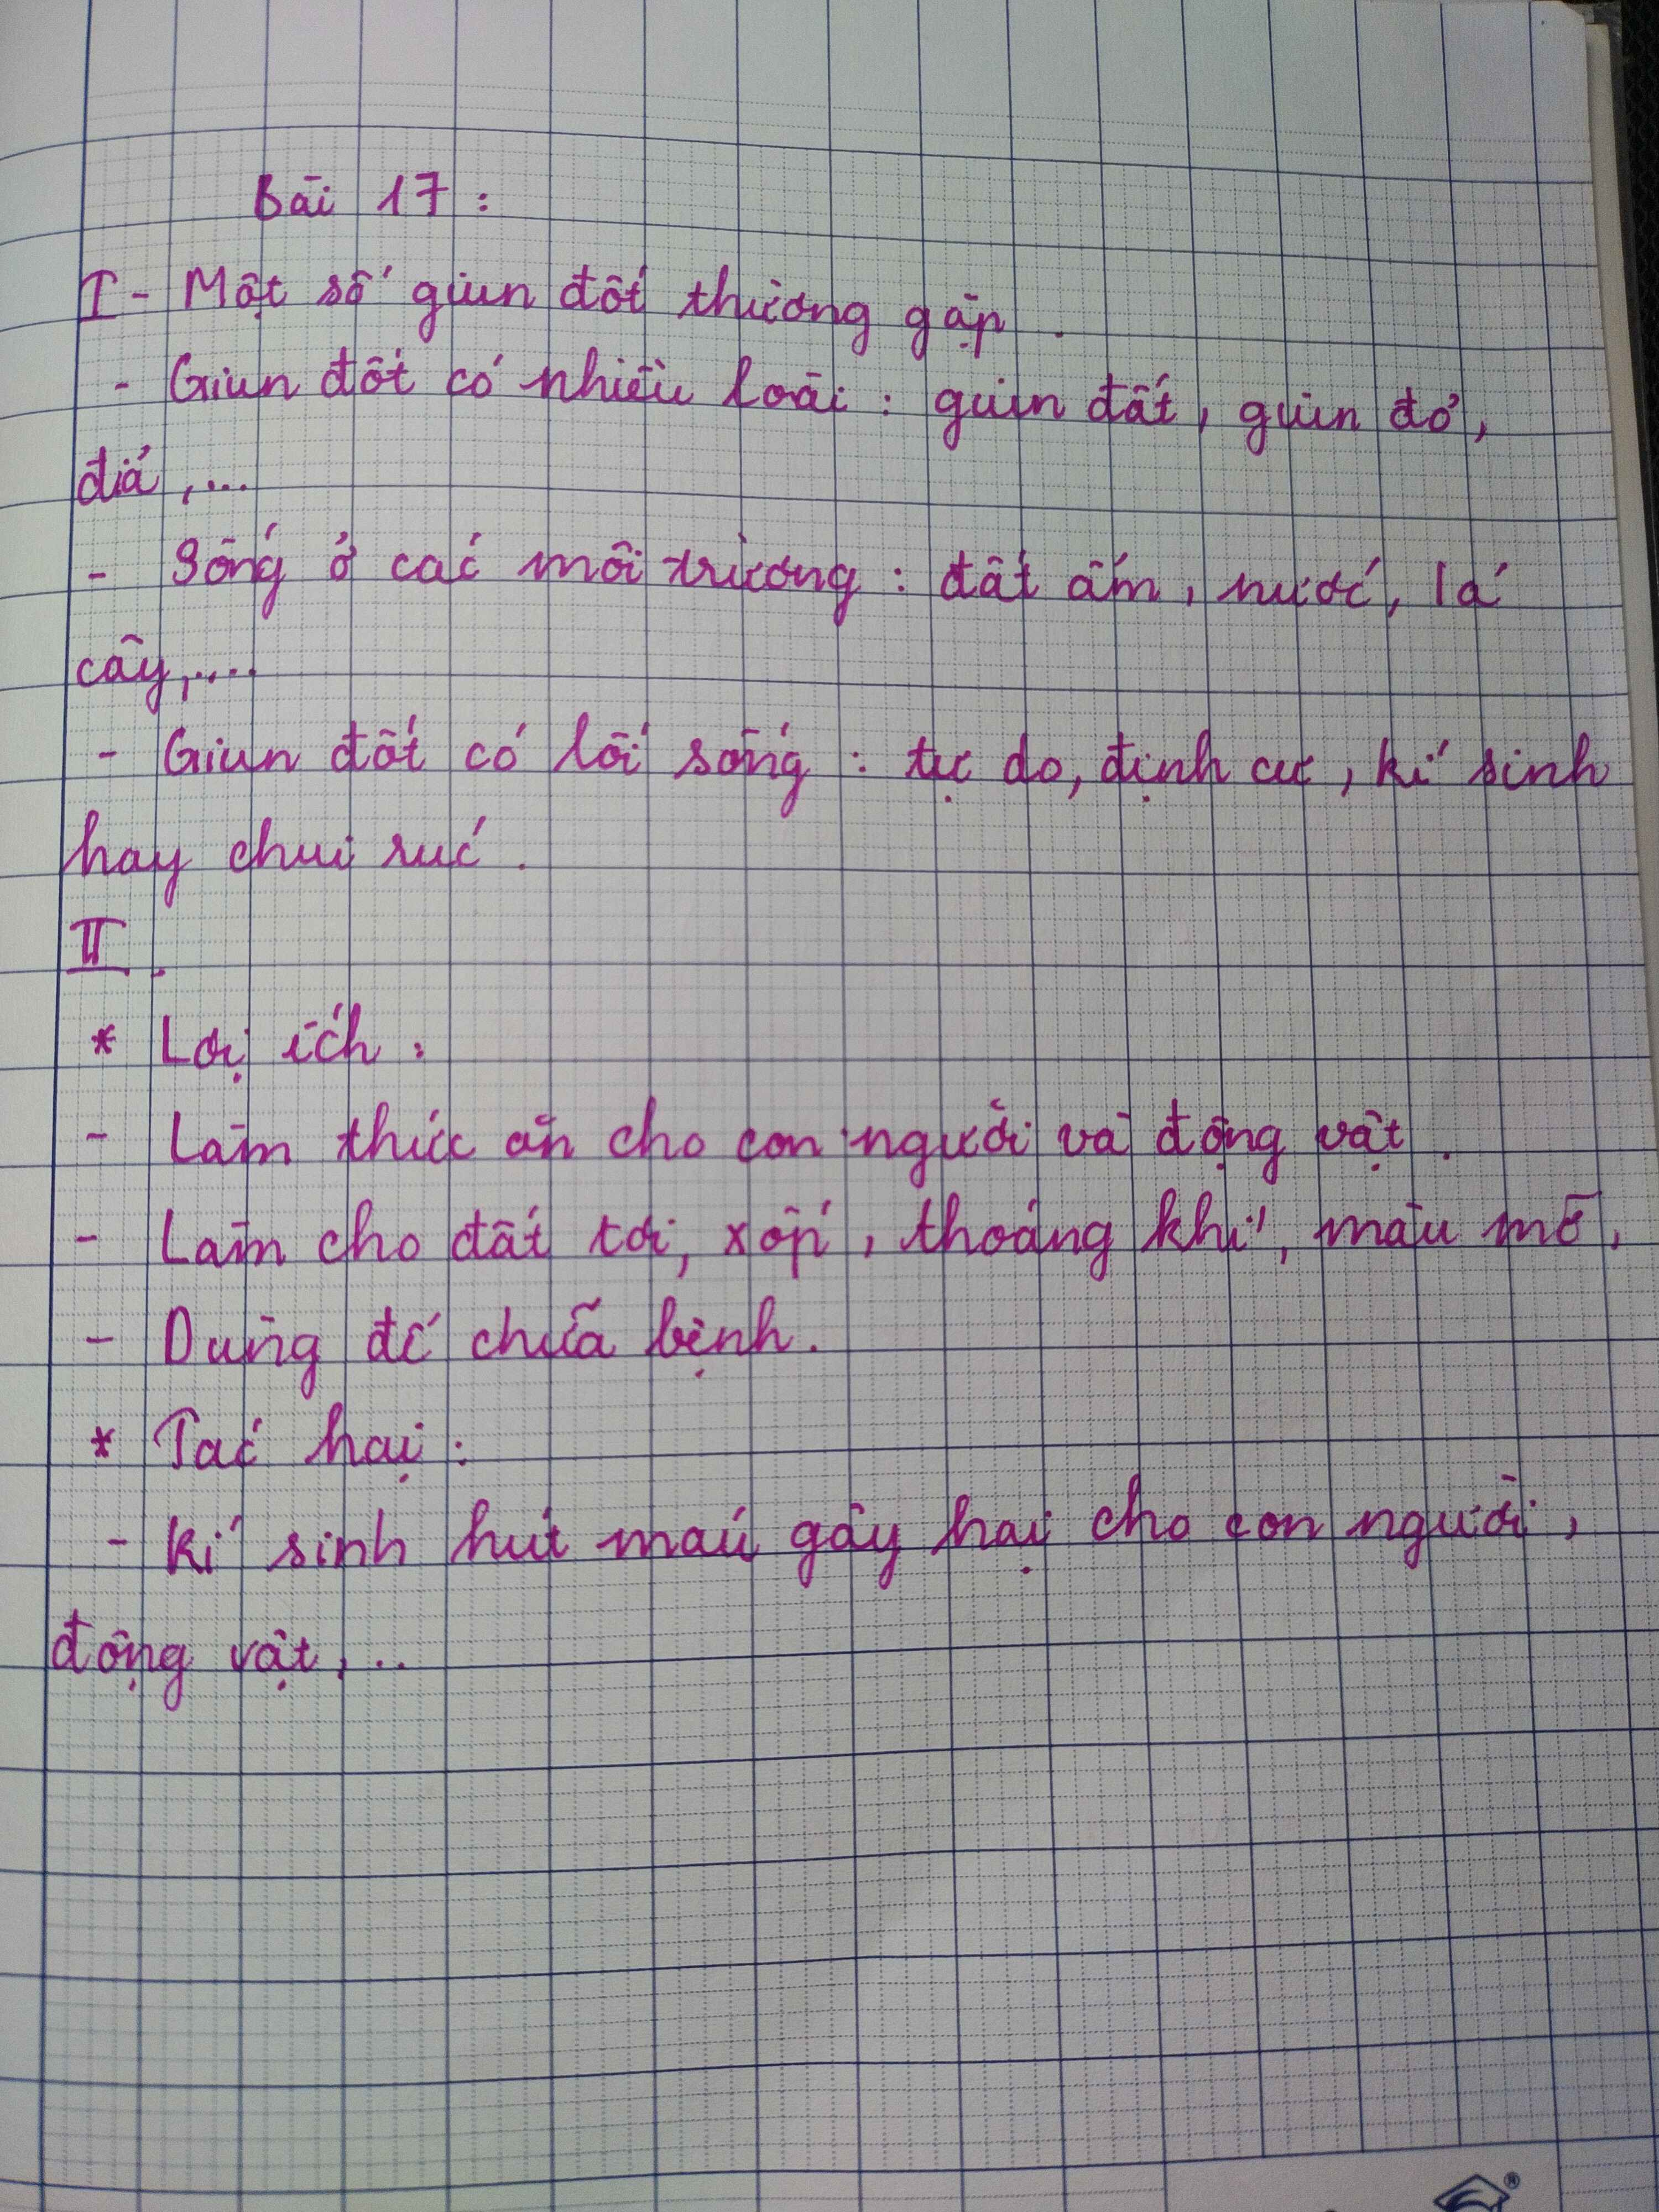 Bài 17 :
I - Một số giun đốt thường gặp .
- Giun đốt có nhiều loài : giun đất, giun đỏ,
đỉa ,...
- Sống ở các môi trường : đất ẩm, nước, lá
cây,....
- Giun đốt có lối sống : tự do, định cư, kí sinh
hay chui rúc .
II .
* Lợi ích :
- Làm thức ăn cho con người và động vật .
- Làm cho đất tơi, xốp, thoáng khí, màu mỡ.
- Dùng để chữa bệnh.
* Tác hại :
- Kí sinh hút máu gây hại cho con người,
động vật,...